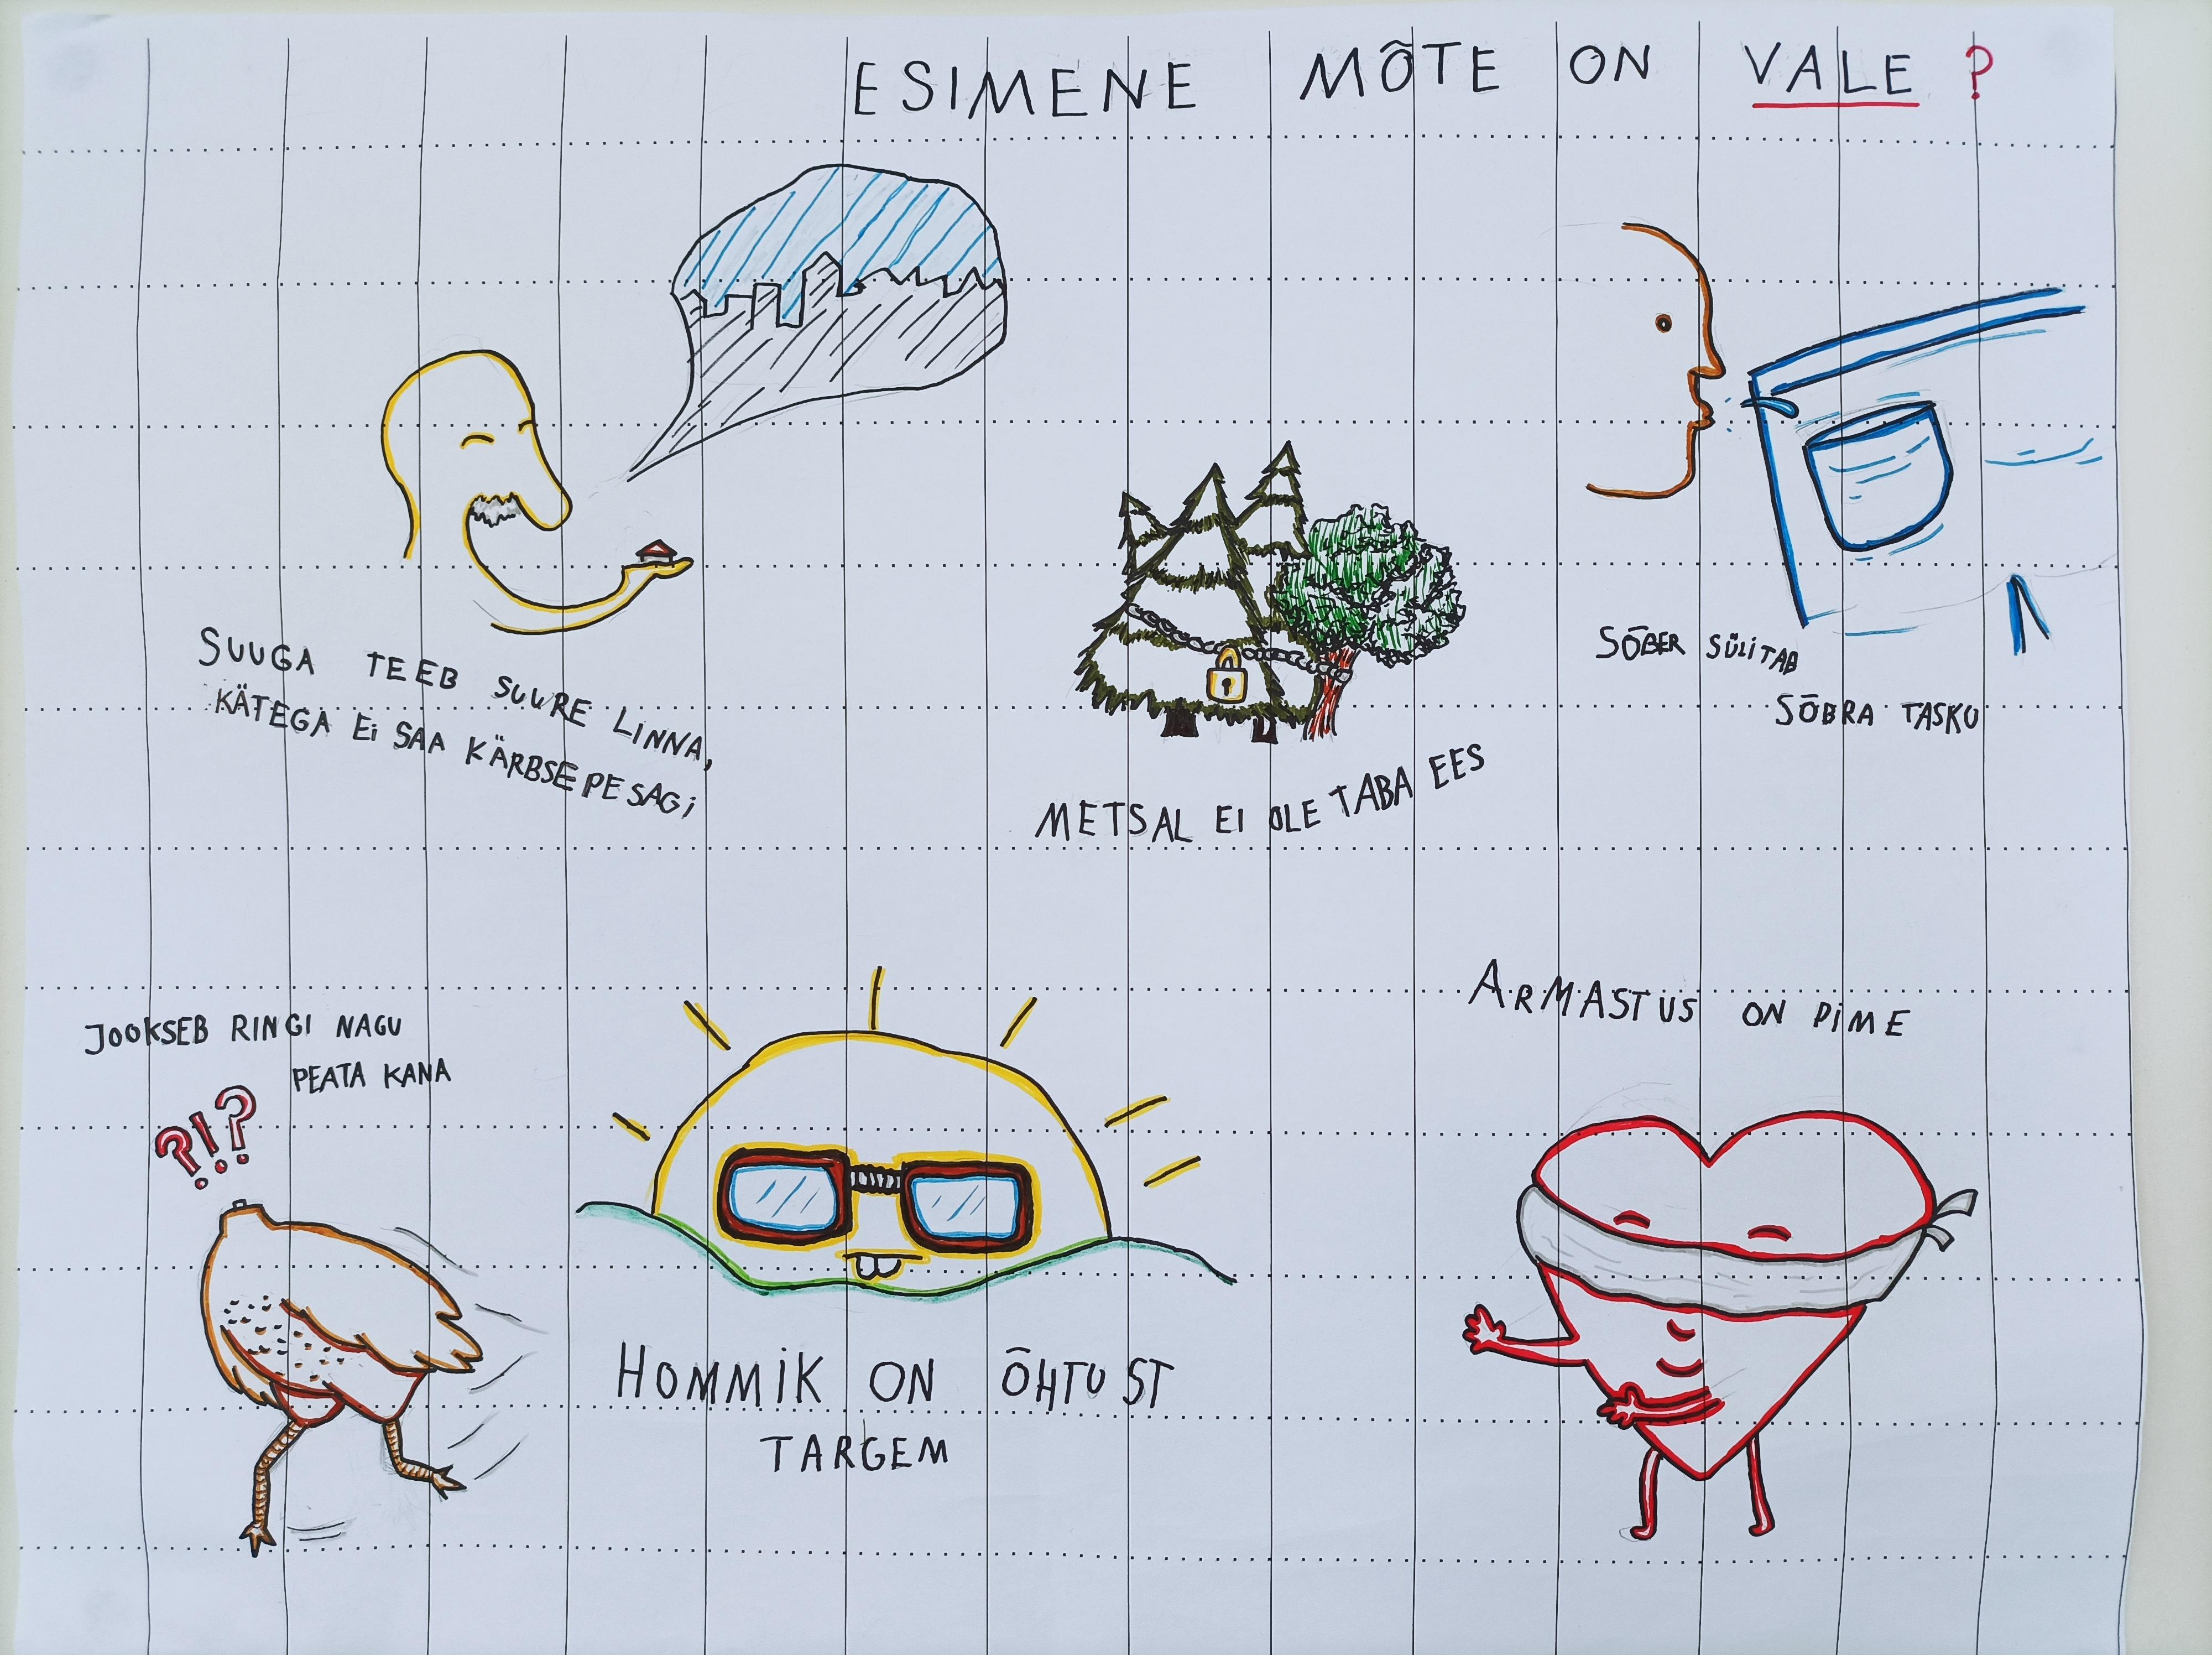 ESIMENE MÕTE ON VALE?
SUUGA TEEB SUURE LINNA,
KÄTEGA EI SAA KÄRBSEPESAGI
METSAL EI OLE TABA EES
SÕBER SÜLITAB
SÕBRA TASKU
JOOKSEB RINGI NAGU
PEATA KANA
?!?
HOMMIK ON ÕHTUST
TARGEM
ARMASTUS ON PIME